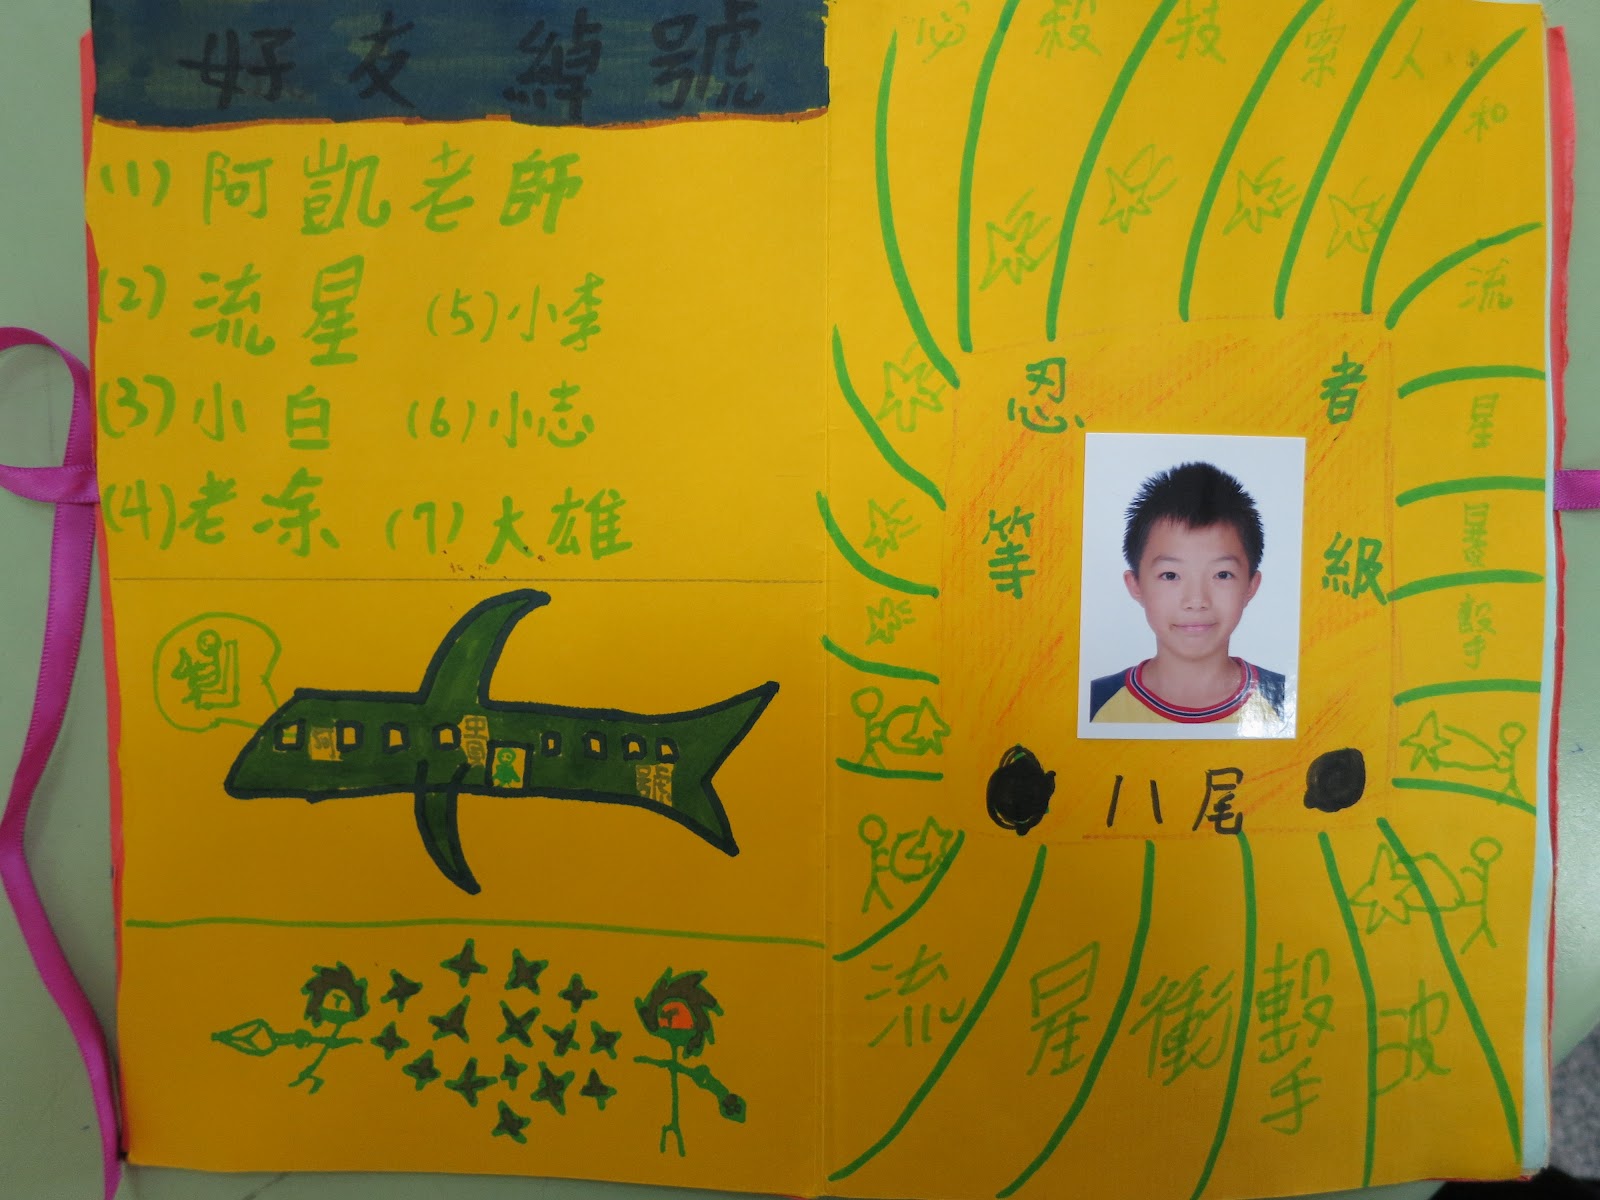 好友綽號
(1)阿凱老師
(2)流星
(5)小李
(3)小白
(6)小志
(4)老涂
(7)大雄
阿
號
必殺技索人和流星暴擊
忍者
等級
八尾
流星衝擊波